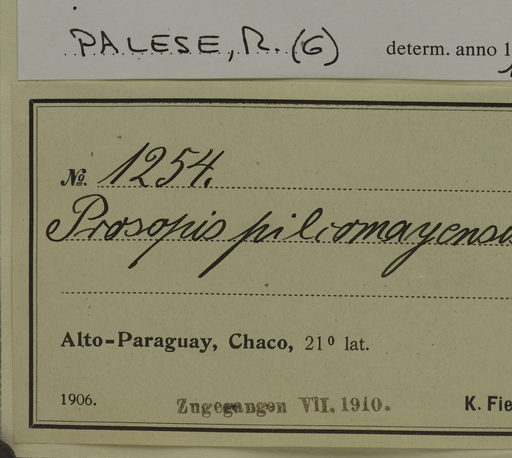 PALESE, R. (G) determ. anno 1
№. 1254.
Prosopis pilcomayensis
Alto-Paraguay, Chaco, 21⁰ lat.
1906. Zugegangen VII. 1910. K. Fie